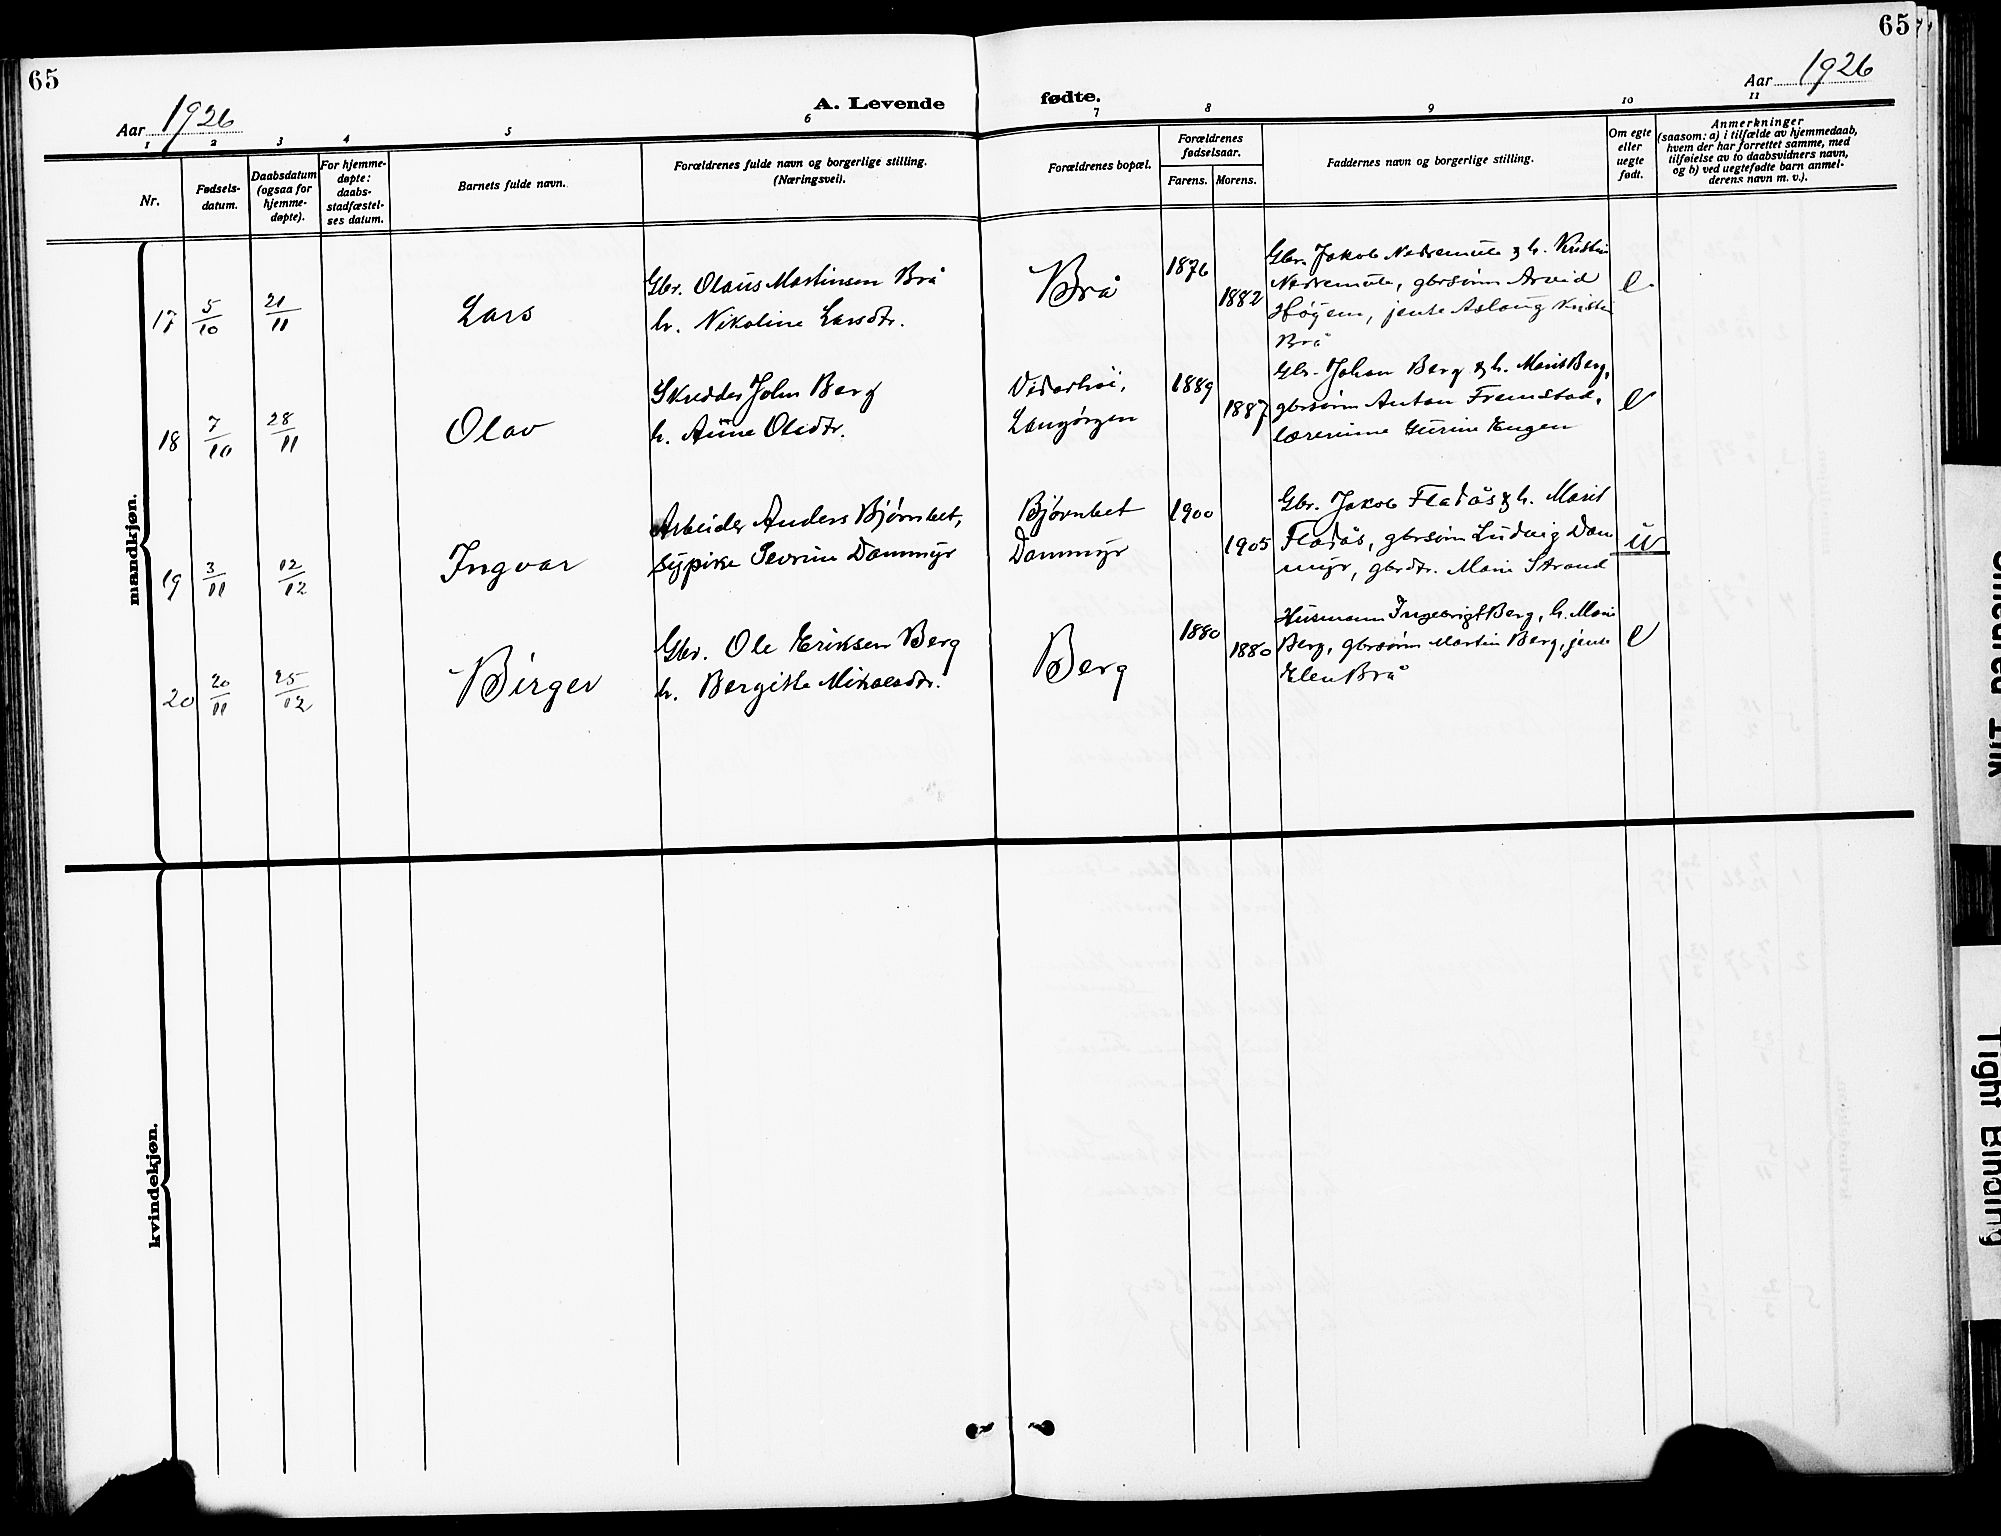 65
65
Aar 1926
A. Levende fødte.
Aar 1926
1 2 3 4 5 6 7 8 9 10 11
Nr.
Fødsels-
datum.
Daabsdatum
(ogsaa for
hjemme-
døpte).
For hjemme-
døpte:
daabs-
stadfæstel-
ses datum.
Barnets fulde navn.
Forældrenes fulde navn og borgerlige stilling.
(Næringsvei).
Forældrenes bopæl.
Forældrenes
fødselsaar.
Farens. Morens.
Faddernes navn og borgerlige stilling.
Om egte
eller
uegte
født.
Anmerkninger
(saasom: a) i tilfælde av hjemmedaab,
hvem der har forrettet samme, med
tilføielse av to daabsvidners navn,
og b) ved uegtefødte barn anmel-
derens navn m. v.).
mandkjøn.
17 5/10 21/11 Lars
Gbr. Olaus Martinsen Brå
h. Nikoline Larsdtr.
Brå
1876 1882
Gbr. Jakob Nedremule & h. Kristin
Nedremule, gbrsønn Arvid
Høyem, jente Aslaug Kristin
Brå
e
18 7/10 28/11 Olav
Skredder John Berg
h. Anne Olsdtr.
Vidarhøi,
Langørgen
1889 1887
Gbr. Johan Berg & h. Marit Berg,
gbrsønn Anton Fremstad,
lærerinne Gurine Engen
e
19 3/11 12/12 Ingvar
Arbeider Anders Bjørnbet,
sypike Sevrine Dammyr
Bjørnbet
Dammyr
1900 1905
Gbr. Jakob Flatås & h. Marit
Flatås, gbrsønn Ludvig Dam
myr, gbrdtr. Marie Strand
u
20 20/11 25/12 Birger
Gbr. Ole Eriksen Berg
h. Bergitte Mikalsdtr.
Berg
1880 1880
Husmann Ingebrigt Berg, h. Marie
Berg, gbrsønn Martin Berg, jente
Elen Brå
e
kvindekjøn.
Tight Binding